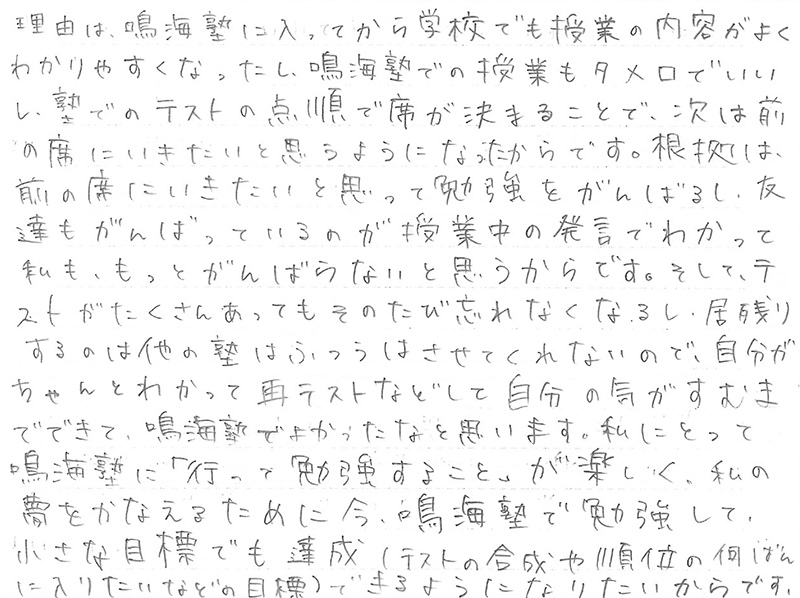 理由は、鳴海塾に入ってから学校でも授業の内容がよく
わかりやすくなったし、鳴海塾での授業もタメ口でいい
し、塾でのテストの点順で席が決まることで、次は前
の席にいきたいと思うようになったからです。根拠は、
前の席にいきたいと思って勉強をがんばるし、友
達もがんばっているのが授業中の発言でわかって
私も、もっとがんばらないと思うからです。そして、テ
ストがたくさんあってもそのたび忘れなくなるし、居残り
するのは他の塾はふつうはさせてくれないので、自分が
ちゃんとわかって再テストなどして自分の気がすむま
でできて、鳴海塾でよかったなと思います。私にとって
鳴海塾に「行って勉強すること」が楽しく、私の
夢をかなえるために今、鳴海塾で勉強して、
小さな目標でも達成(テストの合成や順位の何ばん
に入りたいなどの目標)できるようになりたいからです。